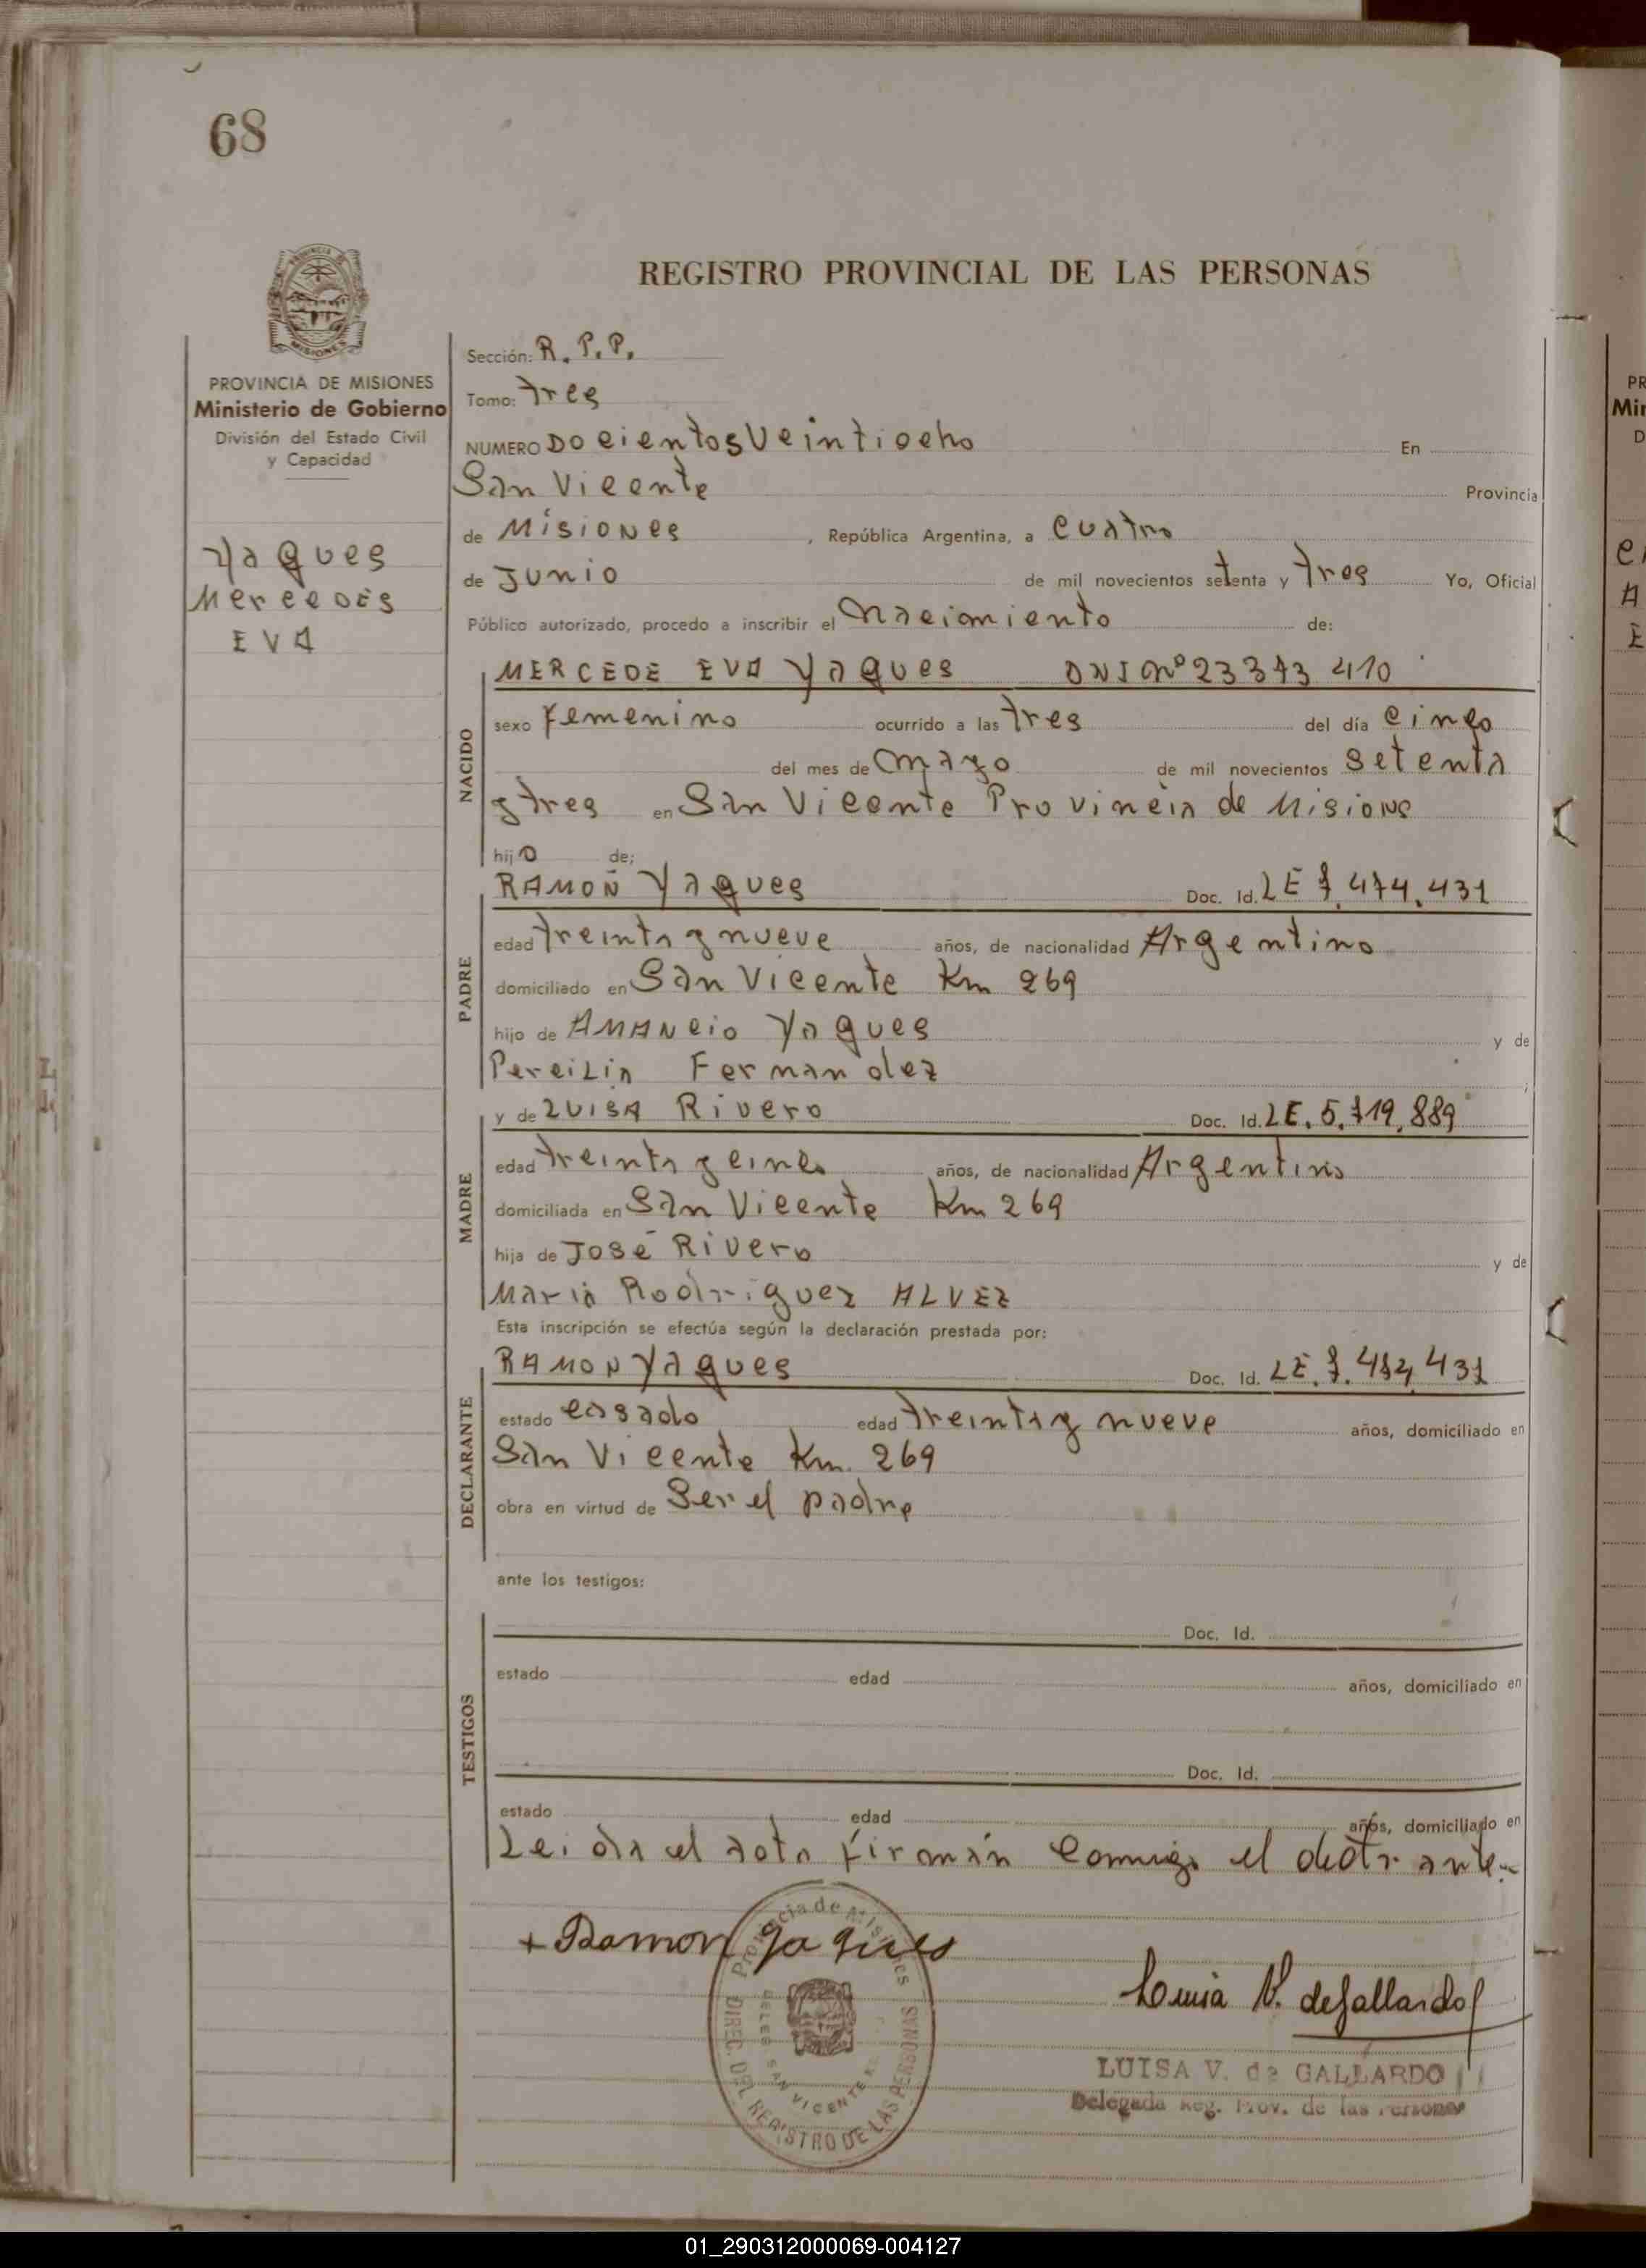 68
REGISTRO PROVINCIAL DE LAS PERSONAS
PROVINCIA DE MISIONES
Ministerio de Gobierno
División del Estado Civil
y Capacidad
Yaques
Mercedes
EVA
Sección: R. P. P.
Tomo: tres
NUMERO Docientos Veintiocho En
San Vicente Provincia
de Misiones , República Argentina, a cuatro
de Junio de mil novecientos setenta y tres Yo, Oficial
Público autorizado, procedo a inscribir el Nacimiento de:
NACIDO
MERCEDE EVA Yaques DNI Nº 23373410
sexo femenino ocurrido a las tres del día cinco
del mes de mayo de mil novecientos setenta
y tres en San Vicente Provincia de Misions
hij de:
PADRE
RAMON Yaques Doc. Id. LE 7.474.431
edad treinta y nueve años, de nacionalidad Argentino
domiciliado en San Vicente Km 269
hijo de AMANCIO Yaques y de
Percilia Fernandez
MADRE
y de LUISA Rivero Doc. Id. LE. 5.719.889
edad treinta y cinco años, de nacionalidad Argentina
domiciliada en San Vicente Km 269
hija de José Rivero y de
Maria Rodriguez ALVEZ
Esta inscripción se efectúa según la declaración prestada por:
DECLARANTE
RAMON Yaques Doc. Id. LE. 7. 431
estado casado edad treinta y nueve años, domiciliado en
San Vicente Km. 269
obra en virtud de Ser el padre
ante los testigos:
TESTIGOS
Doc. Id.
estado edad años, domiciliado en
Doc. Id.
estado edad años, domiciliado en
Leida el acta firman conmigo el
+ Ramon Yaques
Provincia de Misiones
DIREC. DEL REGISTRO DE LAS PERSONAS
SAN VICENTE
Luisa V. de Gallardo
LUISA V. de GALLARDO
Delegada Reg. Prov. de las Personas
01_290312000069-004127